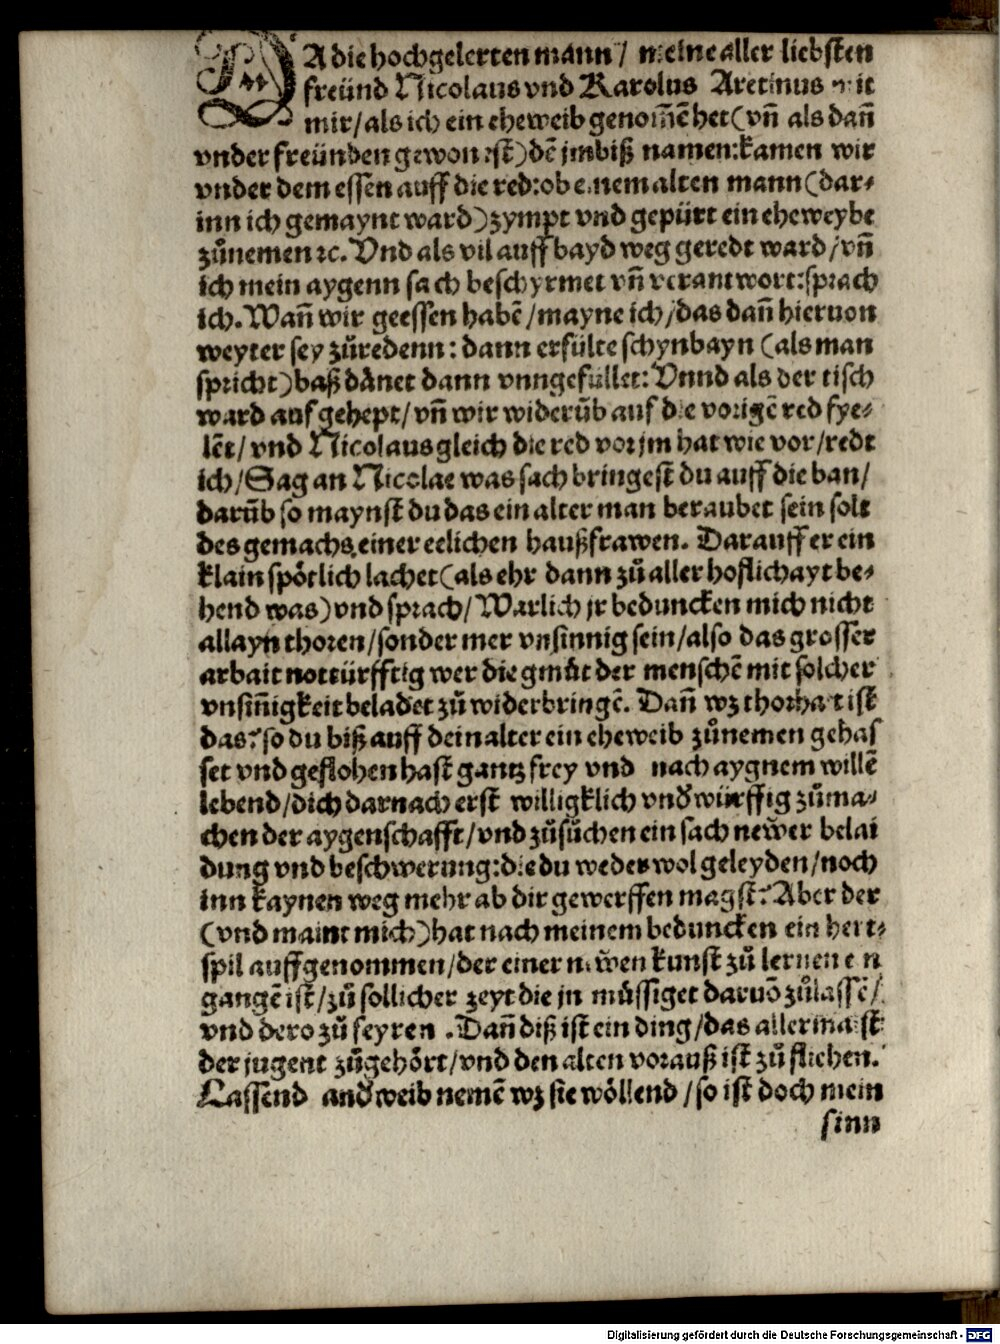 DA die hochgelerten mann / meine aller liebsten
freünd Nicolaus vnd Karolus Aretinus mit
mir/als ich ein eheweib genom̄ē het(vn̄ als dan̄
vnder freünden gewon ist)dē jmbiß namen:kamen wir
vnder dem essen auff die red:ob einem alten mann(dar⸗
inn ich gemaynt ward)zympt vnd gepürt ein eheweybe
zůnemen ꝛc. Vnd als vil auff bayd weg geredt ward/vn̄
ich mein aygenn sach beschyrmet vn̄ verantwort:sprach
ich. Wan̄ wir geessen habē/mayne ich/das dan̄ hieruon
weyter sey zůredenn: dann erfülte schynbayn (als man
spricht)baß dånet dann vnngefüllet: Vnnd als der tisch
ward auf gehept/vn̄ wir widerūb auf die vorigē red fye⸗
lēt/vnd Nicolaus gleich die red vor jm hat wie vor/redt
ich/Sag an Nicolae was sach bringest du auff die ban/
darūb so maynst du das ein alter man beraubet sein solt
des gemachs einer eelichen haußfrawen. Darauff er ein
klain spötlich lachet(als ehr dann zů aller hoflichayt be⸗
hend was)vnd sprach/Warlich jr beduncken mich nicht
allayn thoren/sonder mer vnsinnig sein/also das grosser
arbait nottürfftig wer die gmüt der menschē mit solcher
vnsin̄igkeit beladet zů widerbringē. Dan̄ wz thorhait ist
das? so du biß auff dein alter ein eheweib zůnemen gehas
set vnd geflohen hast gantz frey vnd nach aygnem willē
lebend/dich darnach erst williglklich vnd̕würffig zůma⸗
chen der aygenschafft/vnd zůsůchen ein sach newer belai
dung vnd beschwerung:die du weder wol geleyden/noch
inn kaynen weg mehr ab dir gewerffen magst? Aber der
(vnd maint mich)hat nach meinem beduncken ein hert⸗
spil auffgenommen/der einer newen kunst zů lernen ein
gangē ist/zů sollicher zeyt die jn müssiget daruō zůlassē/
vnd dero zů feyren . Dan̄ diß ist ein ding/das allermaist
der jugent zůgehört/vnd den alten vorauß ist zů fliehen.
Lassend and̕ weib nemē wz sie wöllend/so ist doch mein
sinn
Digitalisierung gefördert durch die Deutsche Forschungsgemeinschaft - DFG